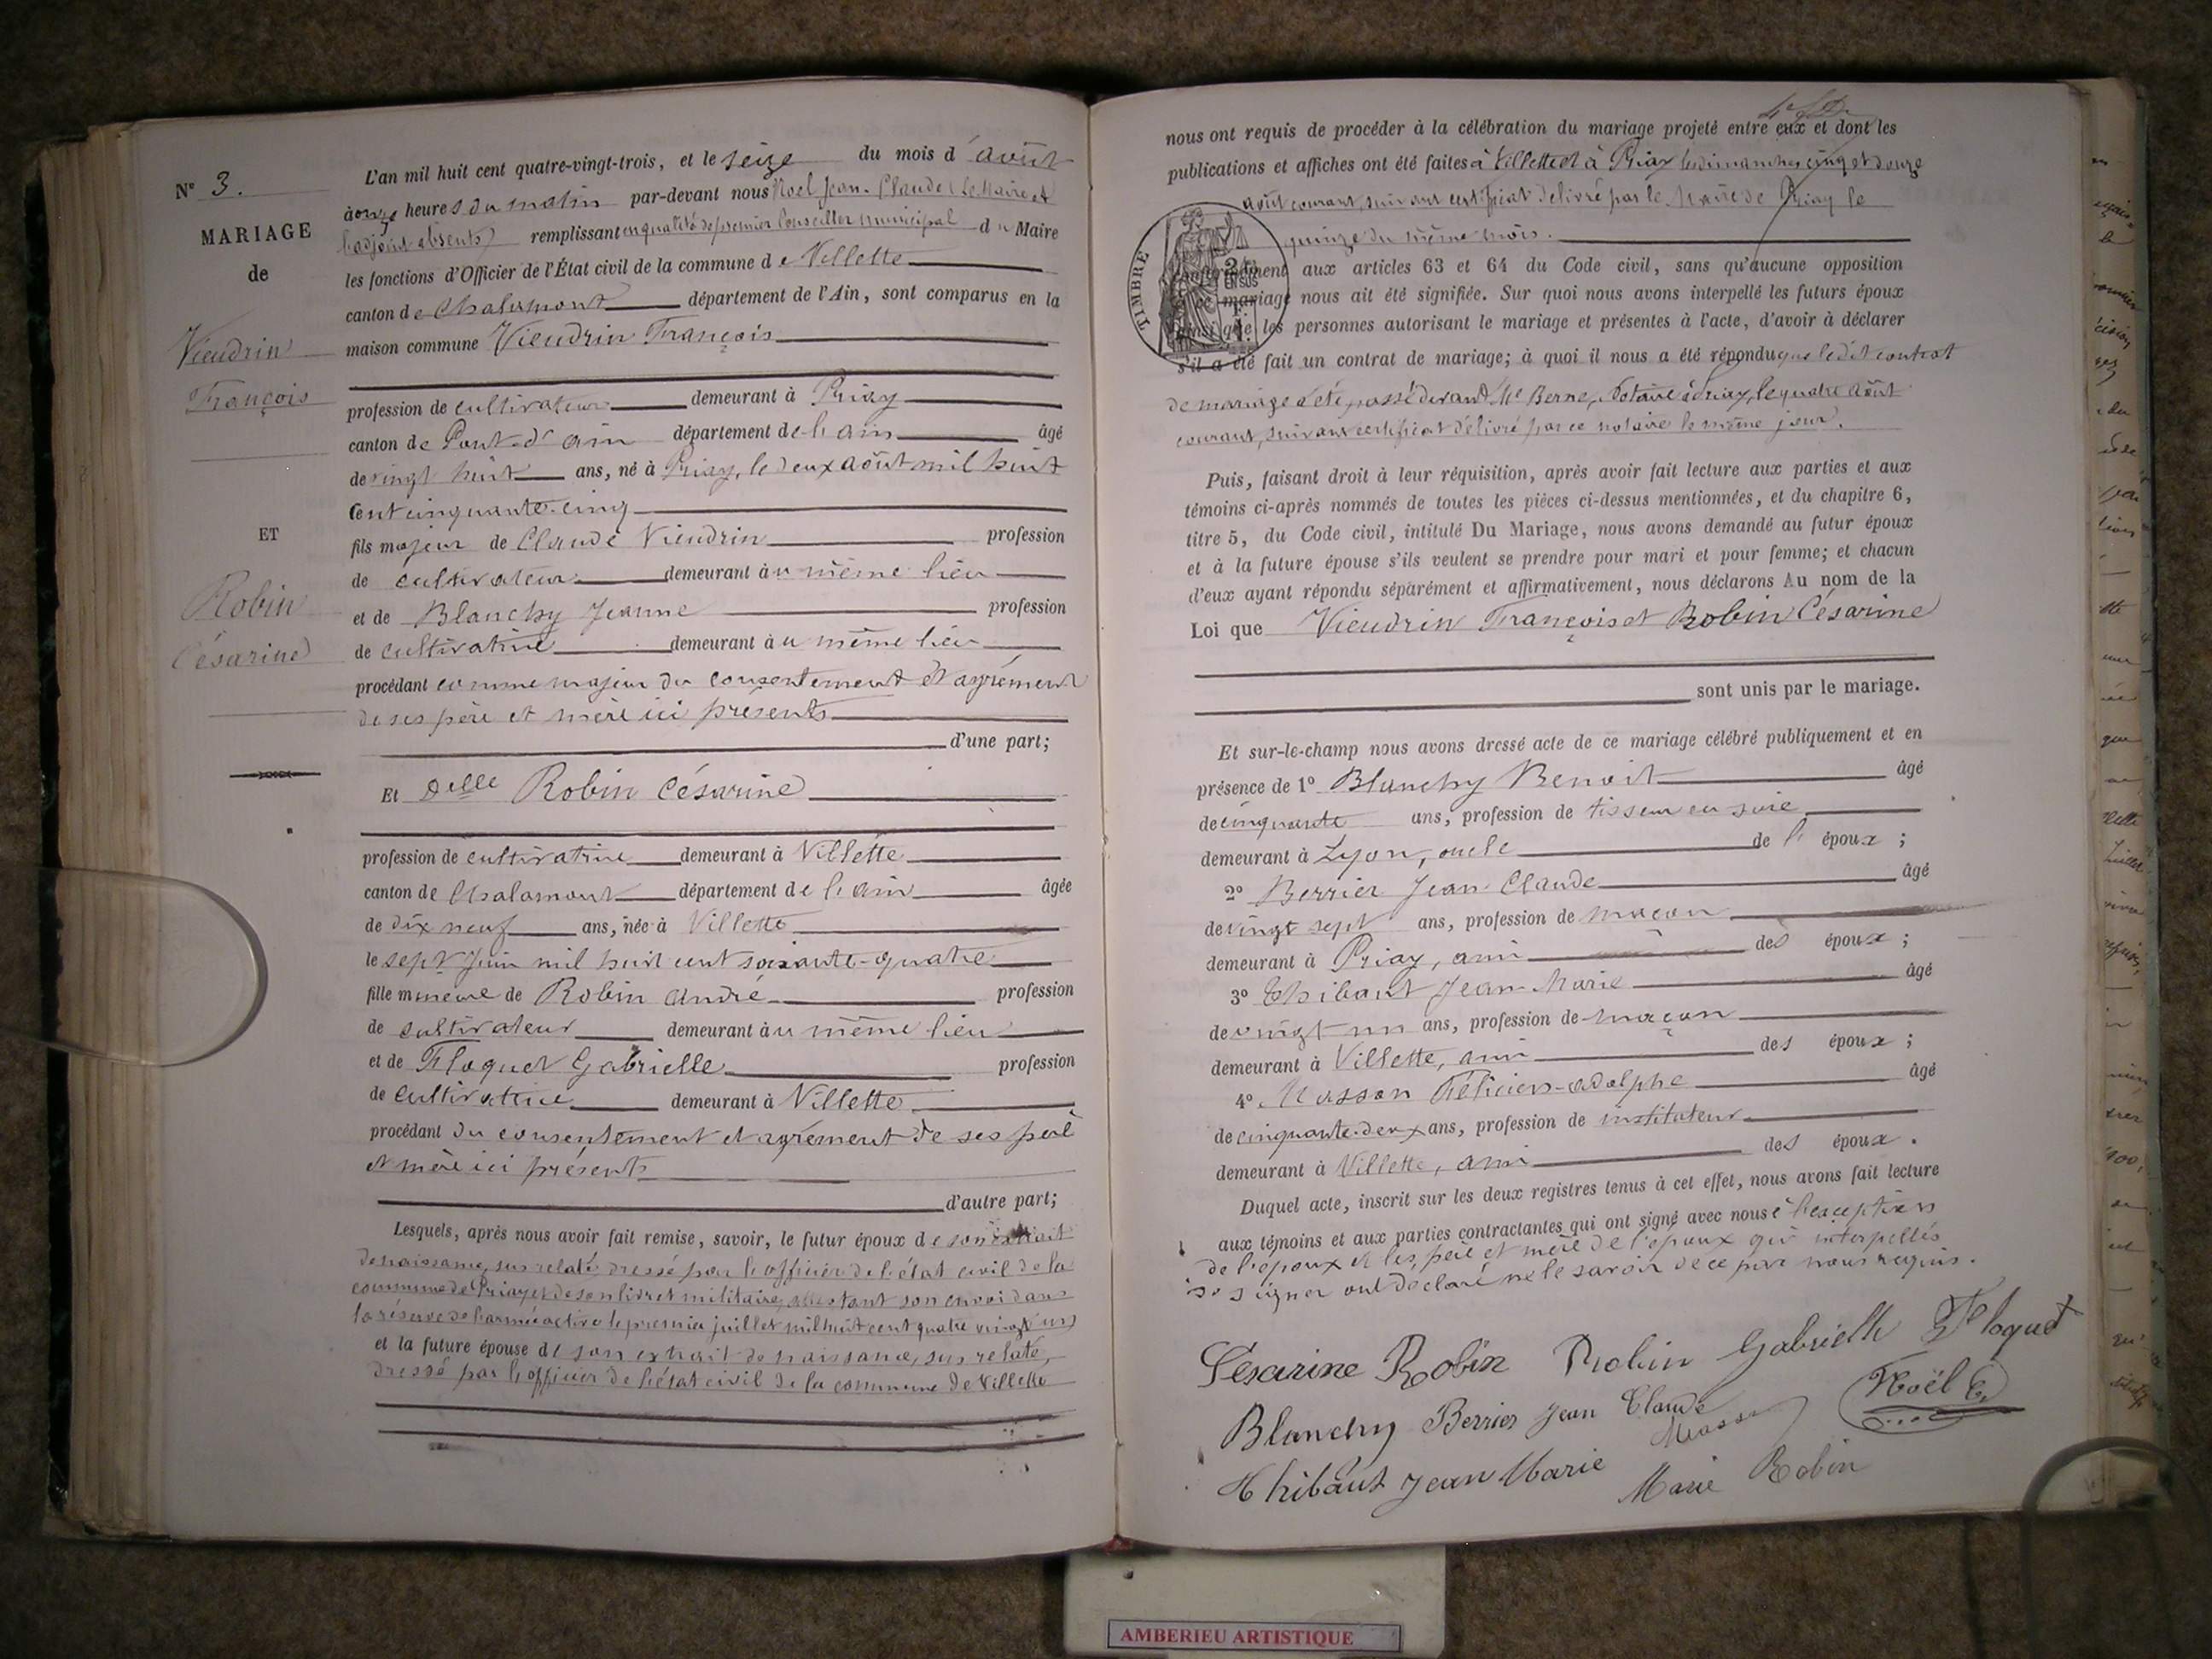 N° 3.
MARIAGE
de
Vieudrin
François
ET
Robin
Césarine
L'an mil huit cent quatre-vingt-trois, et le seize du mois d'août
à onze heures du matin par-devant nous Noël Jean-Claude (Le Maire et
l'adjoint absents) remplissant en qualité de premier Conseiller municipal du Maire
les fonctions d'Officier de l'État civil de la commune de Villette
canton de Chalamont département de l'Ain, sont comparus en la
maison commune Vieudrin François
profession de cultivateur demeurant à Priay
canton de Pont-d'ain département de l'ain âgé
de vingt huit ans, né à Priay, le deux août mil huit
cent cinquante-cinq
fils majeur de Claude Vieudrin profession
de cultivateur demeurant au même lieu
et de Blanchy Jeanne profession
de cultivatrice demeurant au même lieu
procédant comme majeur du consentement et agrément
de ses père et mère ici présents
d'une part;
Et Delle Robin Césarine
profession de cultivatrice demeurant à Villette
canton de Chalamont département de l'ain âgée
de dix neuf ans, née à Villette
le sept Juin mil huit cent soixante-quatre
fille mineure de Robin André profession
de cultivateur demeurant au même lieu
et de Floquet Gabrielle profession
de cultivatrice demeurant à Villette
procédant du consentement et agrément de ses père
et mère ici présents
d'autre part;
Lesquels, après nous avoir fait remise, savoir, le futur époux de son extrait
de naissance, sus relaté, dressé par l'officier de l'état civil de la
commune de Priay et de son livret militaire, attestant son envoi dans
la réserve de l'armée active le premier juillet mil huit cent quatre vingt un)
et la future épouse de son extrait de naissance, sus relaté,
dressé par l'officier de l'état civil de la commune de Villette
nous ont requis de procéder à la célébration du mariage projeté entre eux et dont les
publications et affiches ont été faites à Villette et à Priay les dimanches cinq et douze
août courant, suivant certificat délivré par le Maire de Priay le
quinze du même mois.
TIMBRE
2/10
EN SUS
1 F.
conformément aux articles 63 et 64 du Code civil, sans qu'aucune opposition
à ce mariage nous ait été signifiée. Sur quoi nous avons interpellé les futurs époux
ainsi que les personnes autorisant le mariage et présentes à l'acte, d'avoir à déclarer
s'il a été fait un contrat de mariage; à quoi il nous a été répondu que ledit contrat
de mariage a été passé devant Me Berne, Notaire à Priay, le quatre août
courant, suivant certificat délivré par ce notaire le même jour.
Puis, faisant droit à leur réquisition, après avoir fait lecture aux parties et aux
témoins ci-après nommés de toutes les pièces ci-dessus mentionnées, et du chapitre 6,
titre 5, du Code civil, intitulé Du Mariage, nous avons demandé au futur époux
et à la future épouse s'ils veulent se prendre pour mari et pour femme; et chacun
d'eux ayant répondu séparément et affirmativement, nous déclarons Au nom de la
Loi que Vieudrin François et Robin Césarine
sont unis par le mariage.
Et sur-le-champ nous avons dressé acte de ce mariage célébré publiquement et en
présence de 1° Blanchy Benoit âgé
de cinquante ans, profession de tisseur en soie
demeurant à Lyon, oncle de l'époux;
2° Berrier Jean-Claude âgé
de vingt sept ans, profession de maçon
demeurant à Priay, ami des époux;
3° Thibaut Jean-Marie âgé
de vingt un ans, profession de maçon
demeurant à Villette, ami des époux;
4° Masson Félicien-Adolphe âgé
de cinquante-deux ans, profession de instituteur
demeurant à Villette, ami des époux.
Duquel acte, inscrit sur les deux registres tenus à cet effet, nous avons fait lecture
aux témoins et aux parties contractantes qui ont signé avec nous à l'exception
de l'époux et les père et mère de l'époux qui interpellés
de signer ont déclaré ne le savoir de ce par nous requis.
Césarine Robin Robin Gabrielle Floquet
Blanchy Berrier Jean Claude Masson Noël C.
Thibaut Jean Marie Marie Robin
AMBERIEU ARTISTIQUE